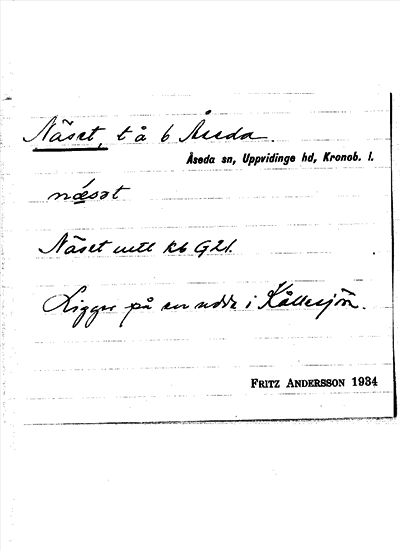 Näset, t å b Åseda.
Åseda sn, Uppvidinge hd, Kronob. l.
næ´sət
Näset uttl kb G21.
Ligger på en udde i Kållesjön.
FRITZ ANDERSSON 1934